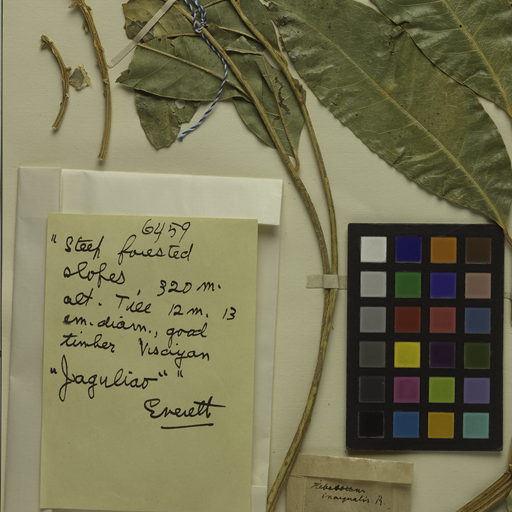 6459
"Steep forested
slopes, 320 m.
alt. Tree 12 m. 13
cm. diam., good
timber Visciyan
"Jaguliao" "
Everett
inaequalis R.